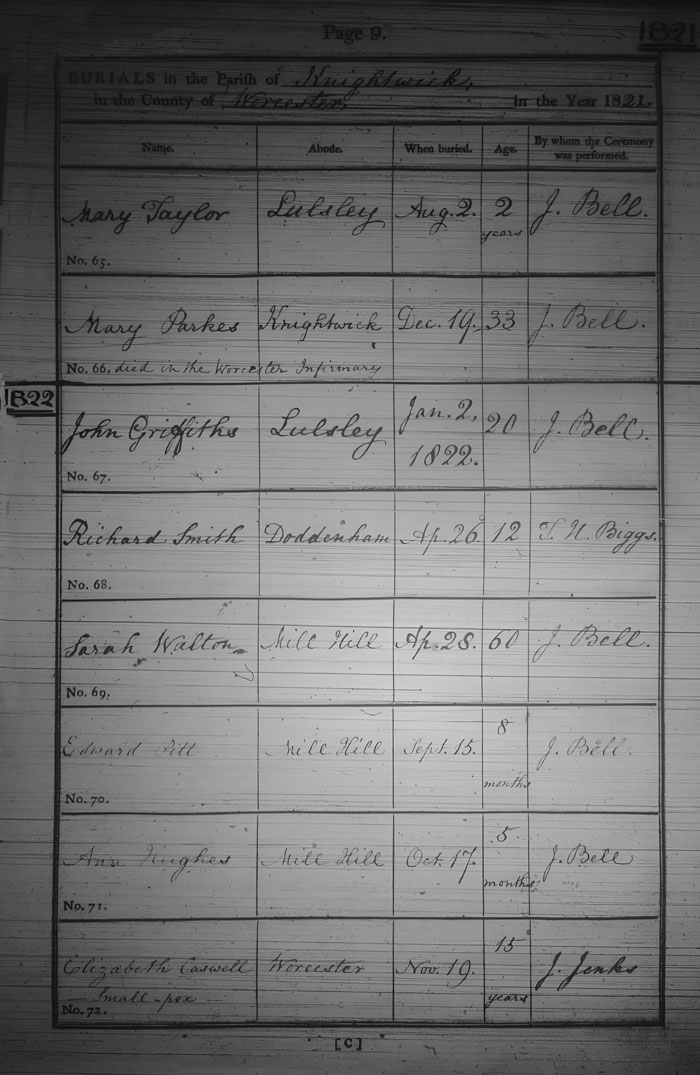 Page 9.
1821
BURIALS in the Parish of Knightwick,
in the County of Worcester, in the Year 1821.
Name. Abode. When buried. Age. By whom the Ceremony was performed.
Mary Taylor Lulsley Aug. 2. 2 years J. Bell.
No. 65.
Mary Parkes Knightwick Dec. 19. 33 J. Bell.
No. 66. died in the Worcester Infirmary
1822
John Griffiths Lulsley Jan. 2, 1822. 20 J. Bell.
No. 67.
Richard Smith Doddenham Ap. 26 12 T. H. Biggs.
No. 68.
Sarah Walton Mill Hill Ap. 28. 60 J. Bell.
No. 69.
Edward Pitt Mill Hill Sept. 15. 8 months J. Bell.
No. 70.
Ann Hughes Mill Hill Oct. 17. 5 months J. Bell
No. 71.
Elizabeth Caswell Worcester Nov. 19. 15 years J. Jenks
Small-pox
No. 72.
[C]